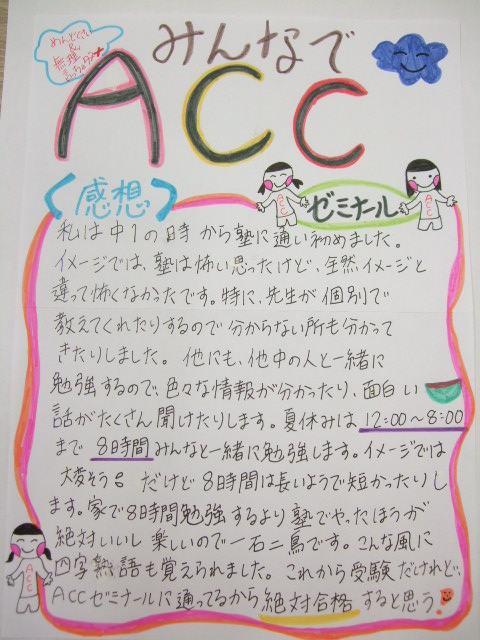 めんどくさい
&
無理
みんなで
ACC
ゼミナール
ACC
ACC
<感想>
私は中1の時から塾に通い初めました。
イメージでは、塾は怖い思ったけど、全然イメージと
違って怖くなかったです。特に、先生が個別で
教えてくれたりするので分からない所も分かって
きたりしました。他にも、他中の人と一緒に
勉強するので、色々な情報が分かったり、面白い
話がたくさん聞けたりします。夏休みは12:00～8:00
まで8時間みんなと一緒に勉強します。イメージでは
大変そう。だけど8時間は長いようで短かったりし
ます。家で8時間勉強するより塾でやったほうが
絶対いいし楽しいので一石二鳥です。こんな風に
四字熟語も覚えられました。これから受験だけれど、
ACCゼミナールに通ってるから絶対合格すると思う
ACC